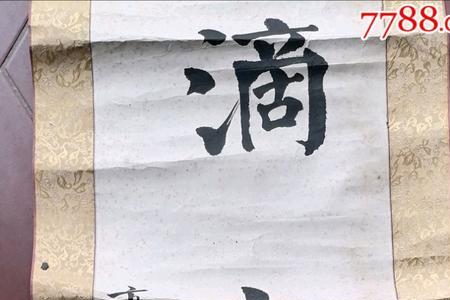 7788.c
滴